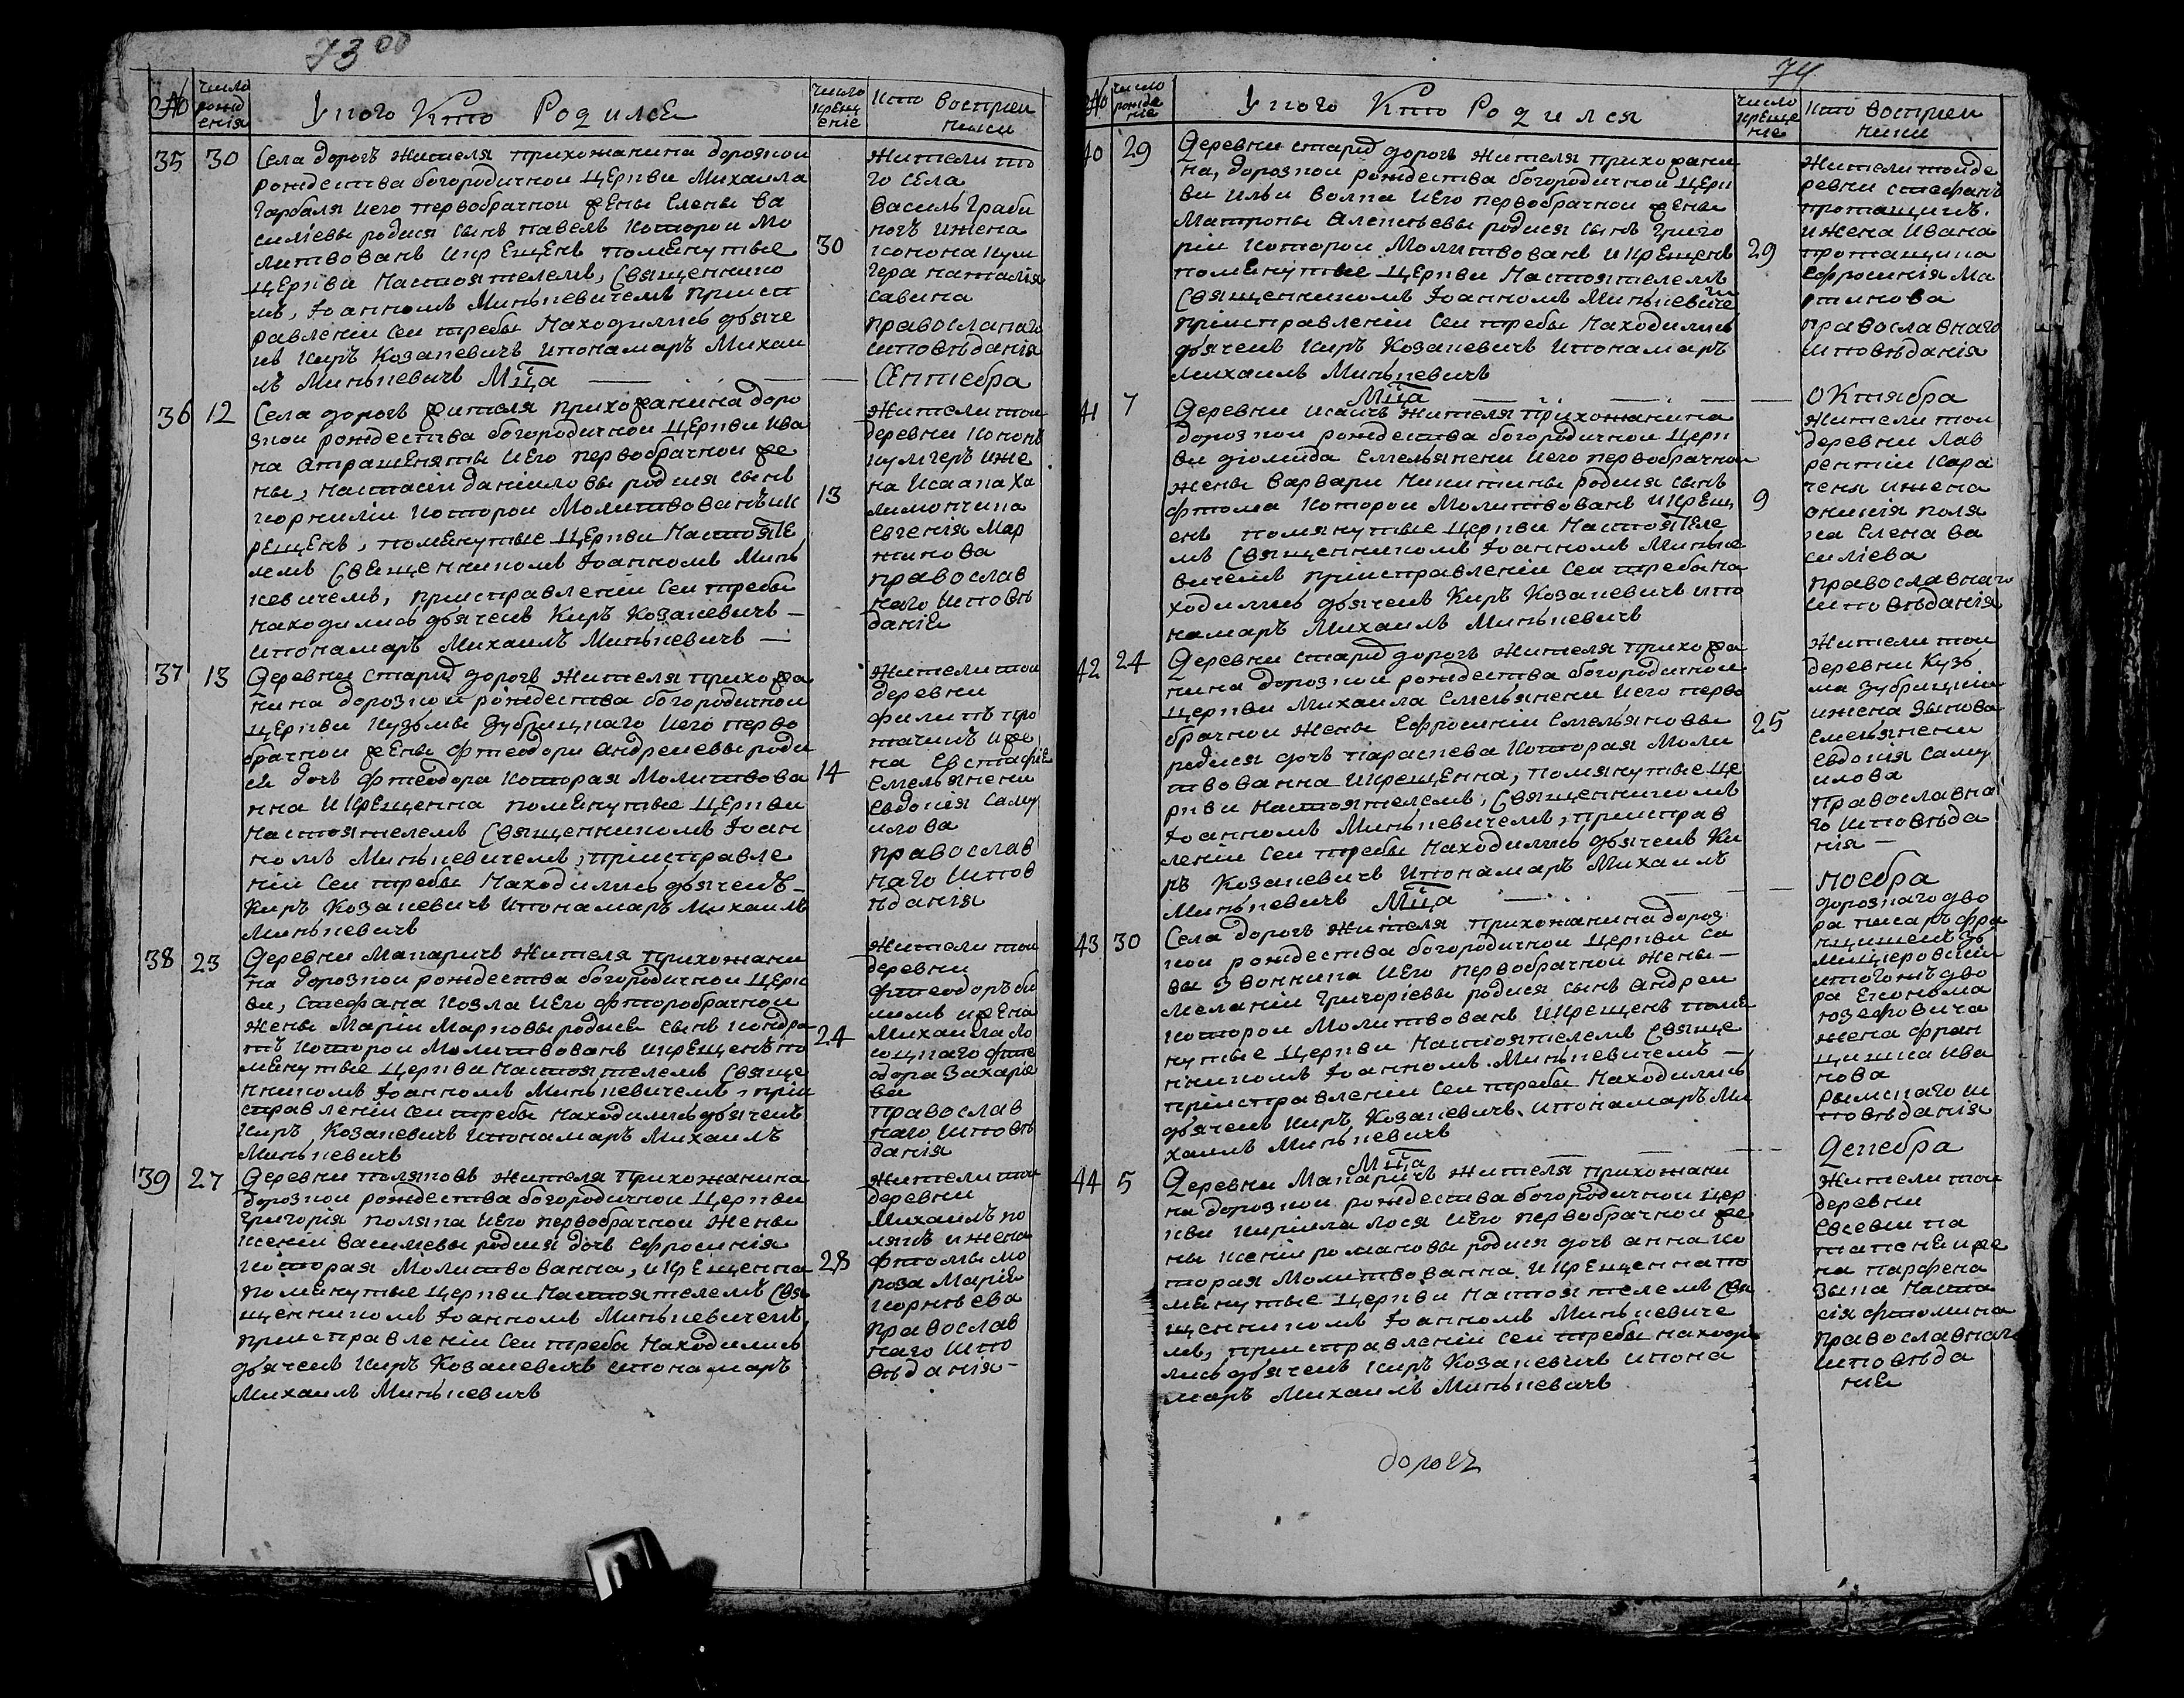 73 00
№
число рожд енія
У кого Кто Родилсе
число крещ еніе
кто восприем ники
35
30
Села дорогъ жителя прихожанина дорозкои
рождества богородичнои Церкви Михаила
Гарбаля и его первобрачнои жены Елены Ва
силіевы родися сынъ павелъ которои Мо
литвованъ и крещенъ поменутые
Церкви Настоятелемъ, Священнико
мъ, Іоанномъ Минькевичемъ приисп
равленіи сеи требы Находились дьяче
къ Киръ Козакевичъ ипонамаръ Михаи
лъ Минькевичъ Мца
30
Жители то
го села
Василь Граби
коръ и жена
конона кум
гера наталія
Савина
православнаго
исповѣданія
Сентебра
36
12
Села дорогъ жителя прихожанина доро
зкои рождества богородичнои Церкви Ива
на и его первобрачнои же
ны, настасіи даниловы родися сынъ
корниліи которои Молитвованъ и к
рещенъ, поменутые Церкви Настояте
лемъ Священникомъ Іоанномъ Минь
кевичемъ, приисправленіи сеи требы
находились дьячекъ Киръ Козакевичъ
ипонамаръ Михаилъ Минькевичъ
13
Жители тои
деревни кононъ
кумгеръ и же
на Исаака ха
лимончика
Евгенія Мар
кинова
православ
наго исповѣ
даніе
37
13
Деревни старид дорогъ жителя прихожа
нина дорозкои рождества богородичнои
Церкви кузьмы Зубрицкаго и его перво
брачнои жены фтеодоры андреевы роди
ся дочь фтеодора которая Молитвова
нна и крещенна поменутые Церкви
Настоятелемъ Священникомъ Іоан
номъ Минькевичемъ, приисправле
ніи сеи требы Находились дьячекъ
Киръ Козакевичъ ипонамаръ Михаилъ
Минькевичъ
14
Жители тои
деревни
филипъ про
тащикъ и же
на Евстафіе
Емельянени
Евдокия Саму
илова
православ
наго испов
ѣданія
38
23
Деревни Макаричъ жителя прихожани
на дорозкои рождества богородичнои Церк
ви, Стефана Козла и его фторобрачнои
жены Маріи Марковы родисе сынъ кондра
тъ которои Молитвованъ и крещенъ по
менутые Церкви Настоятелемъ Свяще
нникомъ Іоанномъ Минькевичемъ, при
справленіи сеи требы находились дьячекъ
Киръ, Козакевичъ ипонамаръ Михаилъ
Минькевичъ
24
Жители тои
деревни
фтеодоръ
и жена
Михаила
фте
одора Захаріе
ва
православ
наго исповѣ
данія
39
27
Деревни поляковъ жителя прихожанина
дорозкои рождества богородичнои Церкви
Григорія поляка и его первобрачнои жены
ксеніи Василіевы родися дочь Ефросинія
которая Молитвованна, и крещенна
поменутые Церкви Настоятелемъ Свя
щенникомъ Іоанномъ Минькевичемъ,
приисправленіи сеи требы Находились
дьячекъ Киръ Козакевичъ ипонамаръ
Михаилъ Минькевичъ
28
жители тои
деревни
Михаилъ по
лякъ и жена
фтомы мо
роза Маріе
корнѣева
православ
наго испо
вѣданія
74
№
число рожде ніе
У кого Кто Родился
число креще ніе
кто восприем ники
40
29
Деревни старид дорогъ жителя прихожани
на, дорозкои рождества богородичнои Церк
ви Ильи Волка и его первобрачнои жены
Матроны Алексѣевы родися сынъ Григо
рии которои Молитвованъ и крещенъ
поменутые Церкви Настоятелемъ
Священникомъ Іоанномъ Минькевиче
приисправленіи сеи требы Находились
дьячекъ Киръ Козакевичъ ипонамаръ
Михаилъ Минькевичъ
29
Жители тои де
ревни стефанъ
протащикъ.
и жена Ивана
протащика
Ефросинія Ма
ртинова
православнаго
исповѣданія
Мца
Октября
41
7
Деревни исаикъ жителя прихожанина
дорозкои рождества богородичнои Церк
ви діомида Емельянени и его первобрачнои
жены Варвары Никитины родися сынъ
фтома которои Молитвованъ и крещ
енъ помянутые Церкви Настояteле
мъ Священникомъ Іоанномъ Миньке
вичемъ приисправленіи сеи требы на
ходились дьячекъ Киръ Козакевичъ ипо
намаръ Михаилъ Минькевичъ
9
Жители тои
деревни лав
рентіи кара
ченя и жена
поля
ка Елена ва
силіева
православнаго
исповѣданія
42
24
Деревни старид дорогъ жителя прихожа
нина дорозкои рождества богородичнои
Церкви Михаила Емельянени и его перво
брачнои жены Ефросиніи Емельяновы
родися дочь параскева которая Моли
твованна и крещенна, помянутые Це
ркви настоятелемъ, Священникомъ
Іоанномъ Минькевичемъ, приисправ
леніи сеи требы Находились дьячекъ Ки
ръ Козакевичъ ипонамаръ Михаилъ
Минькевичъ Мца
25
Жители тои
деревни Кузь
ма зубрицкіи
и жена Зыкова
Емельянени
Евдокія Саму
илова
православна
го исповѣда
нія
ноебра
43
30
Села дорогъ жителя прихожанина дороз
кои рождества богородичнои Церкви Са
вы Звонника и его первобрачнои жены
Меланіи Григоріевы родися сынъ Андреи
которои Молитвованъ и крещенъ поме
нутые Церкви Настоятелемъ Свяще
нникомъ Іоанномъ Минькевичемъ
приисправленіи сеи требы Находились
дьячекъ Киръ Козакевичъ, ипонамаръ Ми
хаилъ Минькевичъ
дорозкаго дво
ра писаръ фра
нцишекъ
и тогожъ дво
ра економа
юзефовича
жена фран
цишка Ива
нова
рымскаго и
повѣданія
Мца
Декебра
44
5
Деревни Макаричъ жителя прихожани
на дорозкои рождества богородичнои Цер
кви кирилла лося и его первобрачнои же
ны ксеніи романовы родися дочь анна ко
торая Молитвованна и крещенна по
менутые Церкви Настоятелемъ Свя
щенникомъ Іоанномъ Минькевиче
мъ, приисправленіи сеи требы находи
лись дьячекъ Киръ Козакевичъ ипона
маръ Михаилъ Минькевичъ
Жители тои
деревни
Евсеви па
и же
на парфена
зыка Наста
сія фтомина
православнаго
исповѣда
ніе
дорогъ